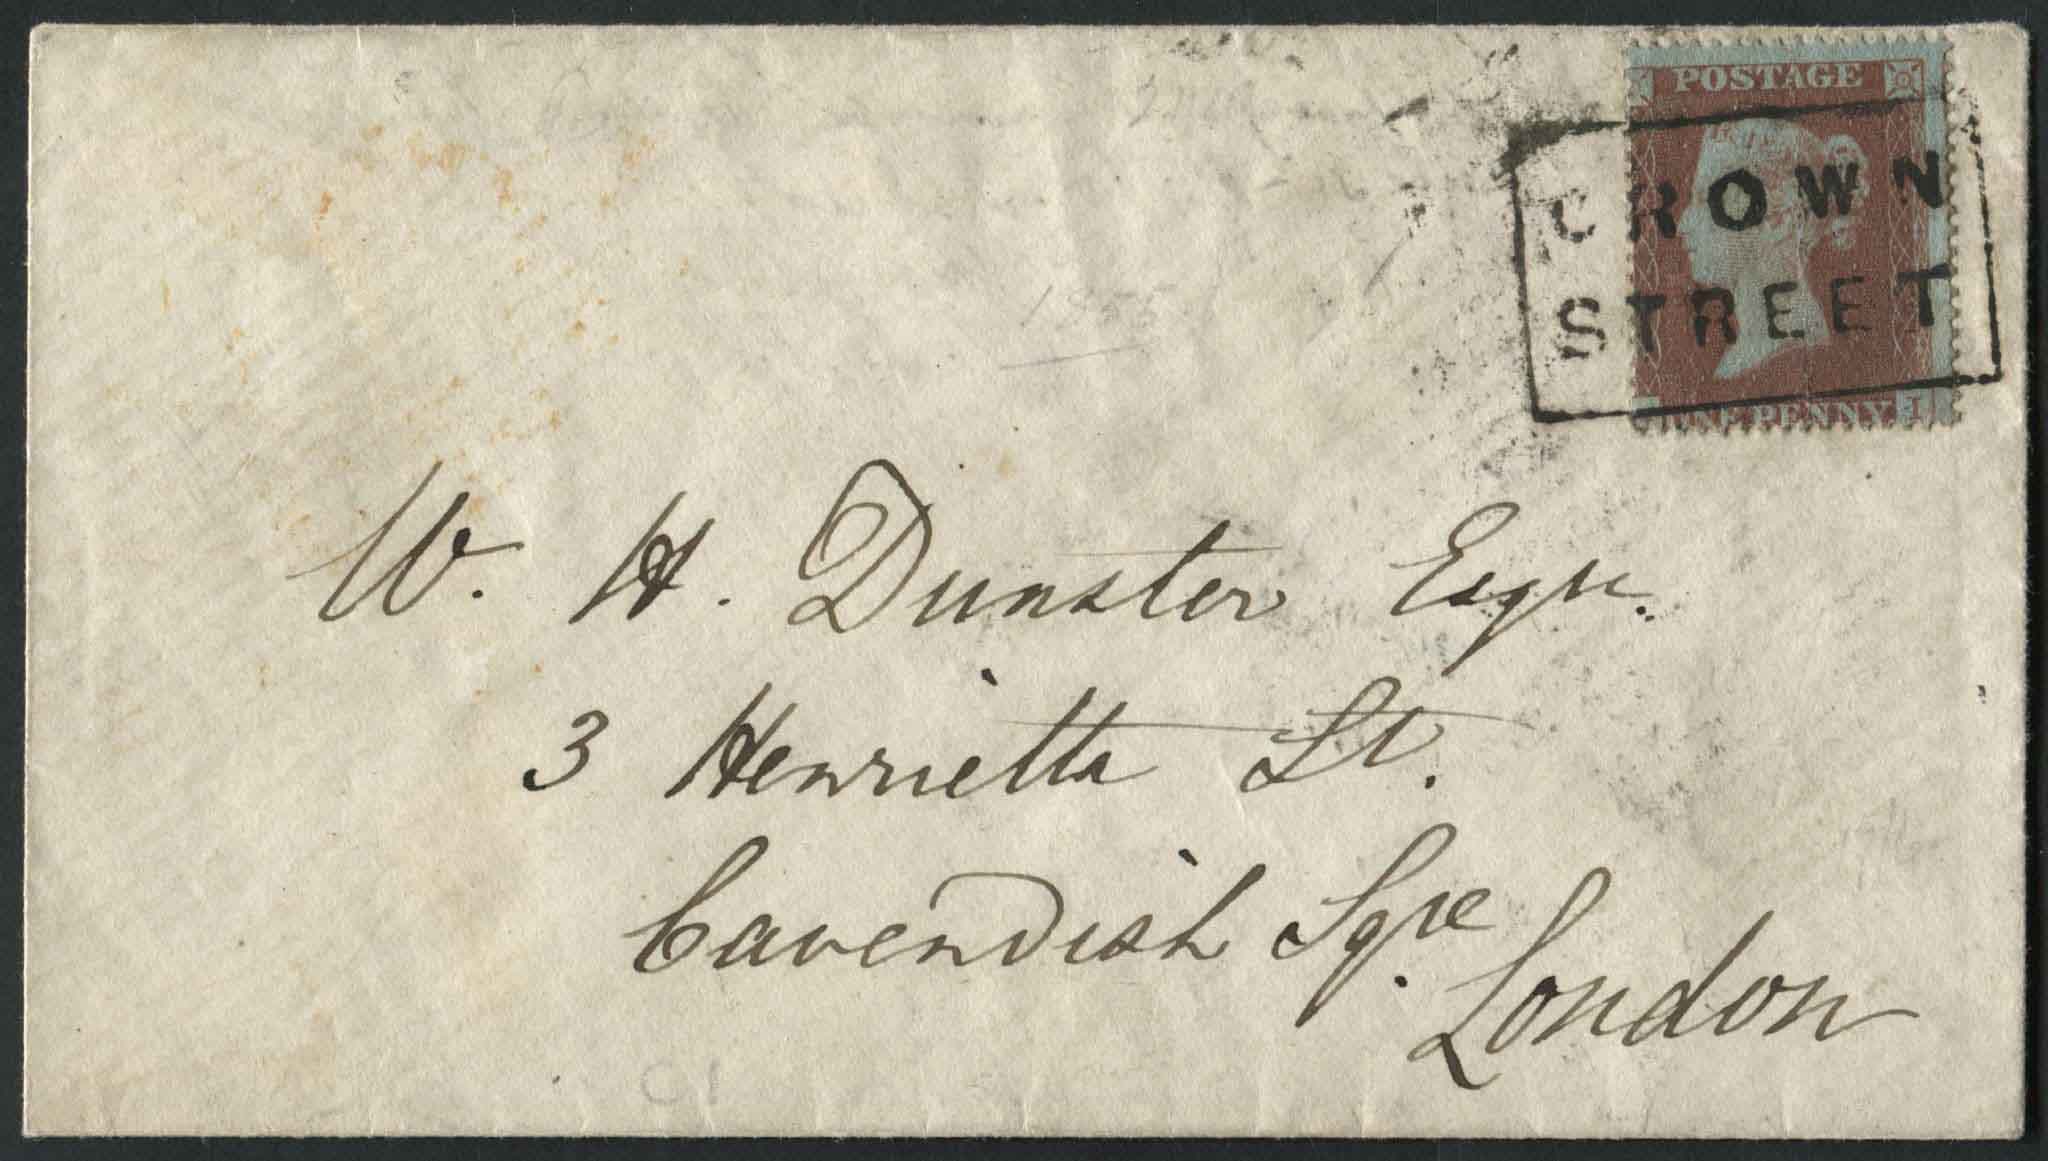 POSTAGE
CROWN
STREET
ONE PENNY I
1855
W. H. Dunster Esqre.
3 Henrietta St.
Cavendish Sqre
London